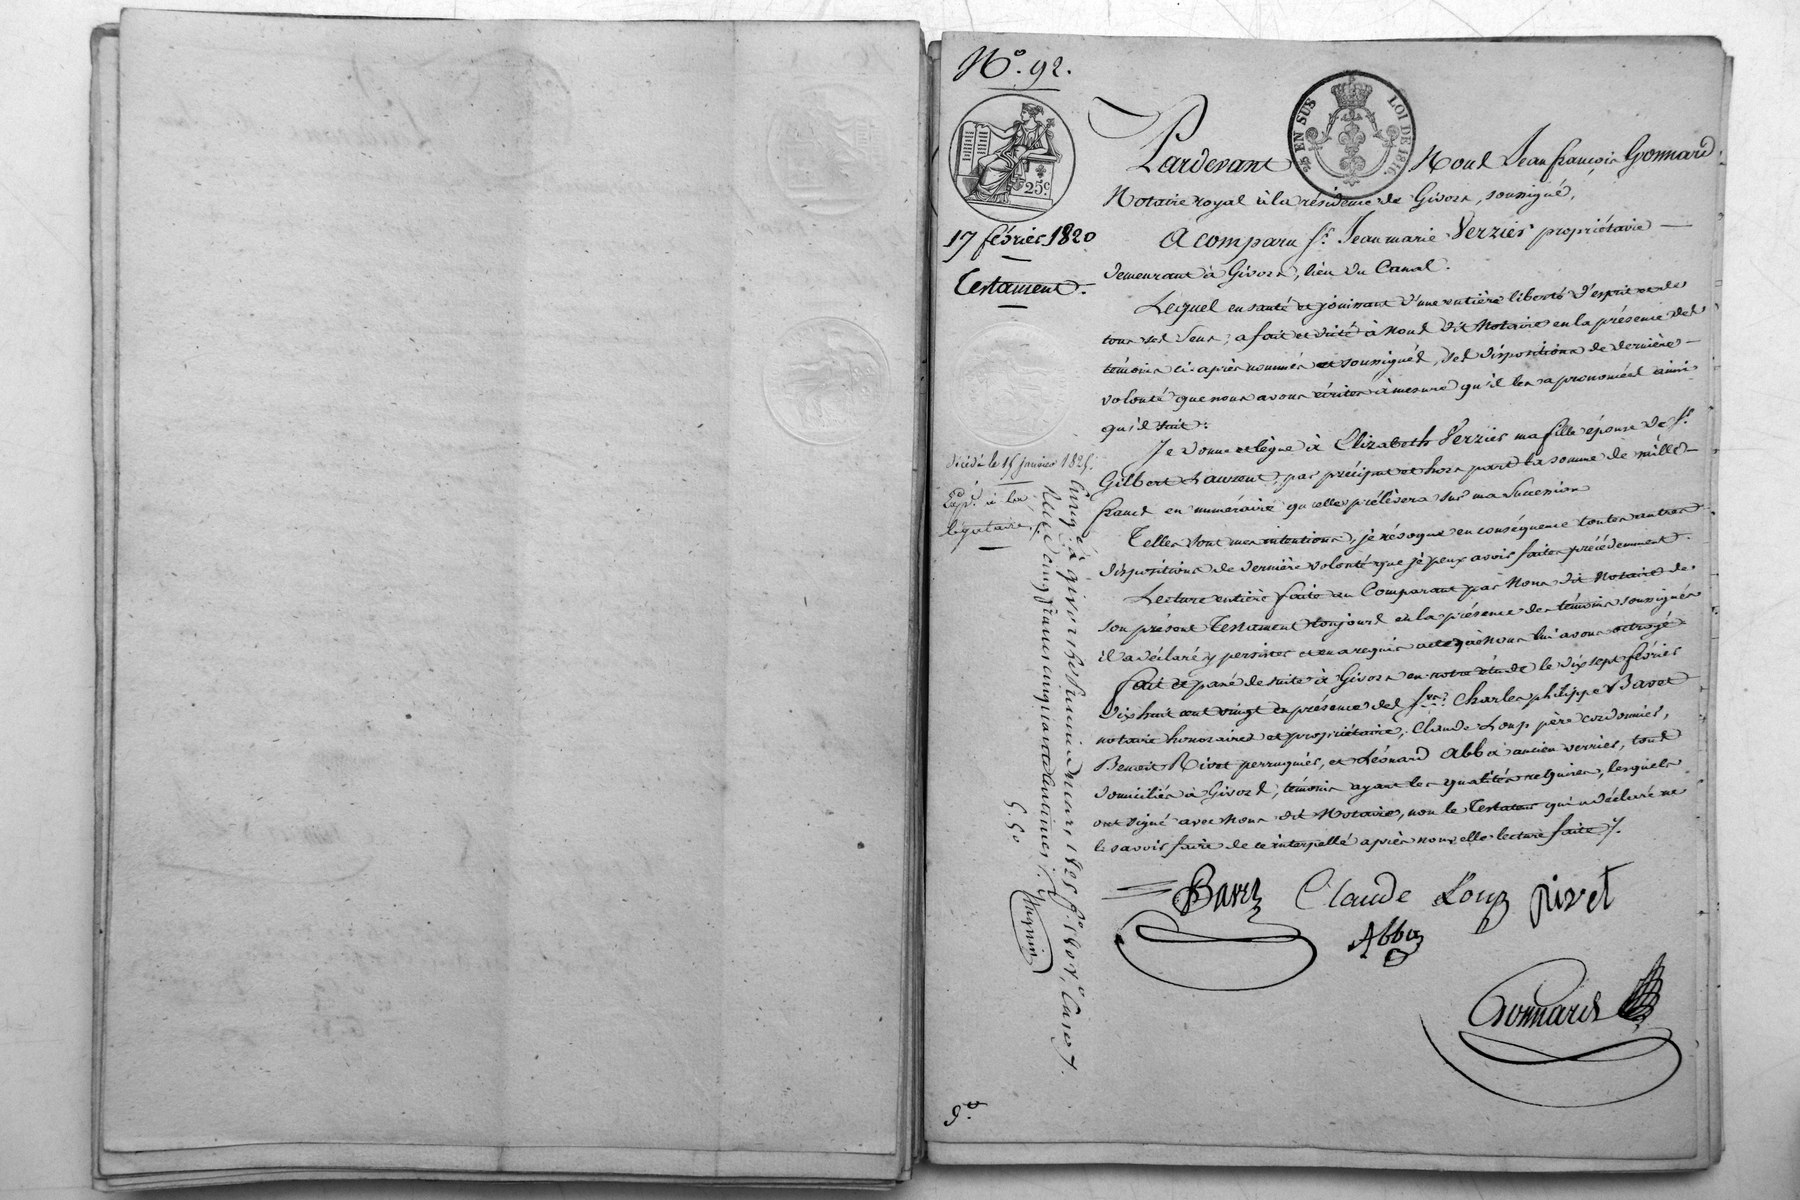 N.o 92.
25 EN SUS
LOI DE 1816.
25c.
17 février 1820
Testament.
décédé le 15 janvier 1825.
Exp.on à la
légataire
Pardevant Nous Jean françois Gonnard,
Notaire royal à la résidence de Givors, soussigné,
A comparu s.r Jean marie Verzier propriétaire
demeurant à Givors, lieu du Canal.
Lequel en santé et jouissant d'une entière liberté d'esprit et de
tous ses sens, a fait et dicté à nous dit Notaire en la présence des
témoins ci-après nommés et soussignés, ses dispositions de dernière
volonté que nous avons écrites à mesure qu'il les a prononcées ainsi
qu'il suit:
Je donne et lègue à Elizabeth Verzier ma fille épouse de s.r
Gilbert Laurent, par préciput et hors part la somme de mille
francs en numéraire qu'elle prélèvera sur ma Succession
Telles sont mes intentions, je révoque en conséquence toutes autres
dispositions de dernière volonté que je peux avoir faites précédemment.
Lecture entière faite au Comparant par Nous dit Notaire de
son présent Testament toujours en la présence des témoins soussignés
il a déclaré y persister et en a requis acte que nous lui avons octroyé
fait et passé de suite à Givors en notre étude le dix sept février
dix huit cent vingt en présence des srs Charles philippe Bavet
notaire honoraire et propriétaire, Claude Loup père cordonnier,
Benoit Rivet perruquier, et Léonard Abba ancien verrier, tous
domiciliés à Givors, témoins ayant les qualités requises, lesquels
ont signé avec Nous dit Notaire, non le Testateur qui a déclaré ne
le savoir faire de ce interpellé après nouvelle lecture faite ./.
Bavet Claude Loup Rivet
Abba
Gonnard
Enreg.é à givors le mars 1825 f.o c.
Reçu cinq francs cinquante centimes ./.
5.50